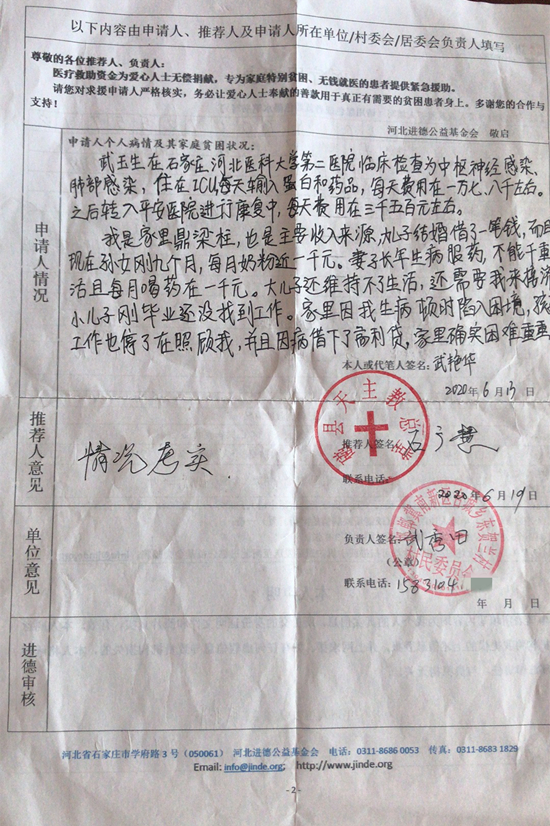 以下内容由申请人、推荐人及申请人所在单位/村委会/居委会负责人填写
尊敬的各位推荐人、负责人：
医疗救助资金为爱心人士无偿捐献，专为家庭特别贫困、无钱就医的患者提供紧急援助。
请您对求援申请人严格核实，务必让爱心人士奉献的善款用于真正有需要的贫困患者身上。多谢您的合作与
支持！
河北进德公益基金会 敬启
申请人情况
申请人个人病情及其家庭贫困状况：
武玉生在石家庄河北医科大学第二医院临床检查为中枢神经感染、
肺部感染，住在ICU每天输入蛋白和药品，每天费用在一万七、八千左右。
之后转入平安医院进行康复中，每天费用在三千五百元左右。
我是家里鼎梁柱，也是主要收入来源，儿子结婚借了一笔钱，而且
现在孙女刚九个月，每月奶粉近一千元。妻子长年生病服药，不能干重
活且每月喝药在一千元。大儿子还维持不了生活，还需要我来接济
小儿子刚毕业还没找到工作。家里因我生病顿时陷入困境，孩
工作也停了在照顾我，并且因病借下了高利贷，家里确实困难重重
本人或代笔人签名：武艳华
2020年6月13日
推荐人意见
情况属实
县天主教
推荐人签名：
联系电话：
2020年6月19日
单位意见
负责人签名：
（公章）
村民委员会
联系电话：1583104
年 月 日
进德审核
河北省石家庄市学府路 3 号（050061） 河北进德公益基金会 电话：0311-8686 0053 传真：0311-8683 1829
Email: info@jinde.org; http://www.jinde.org
- 2 -